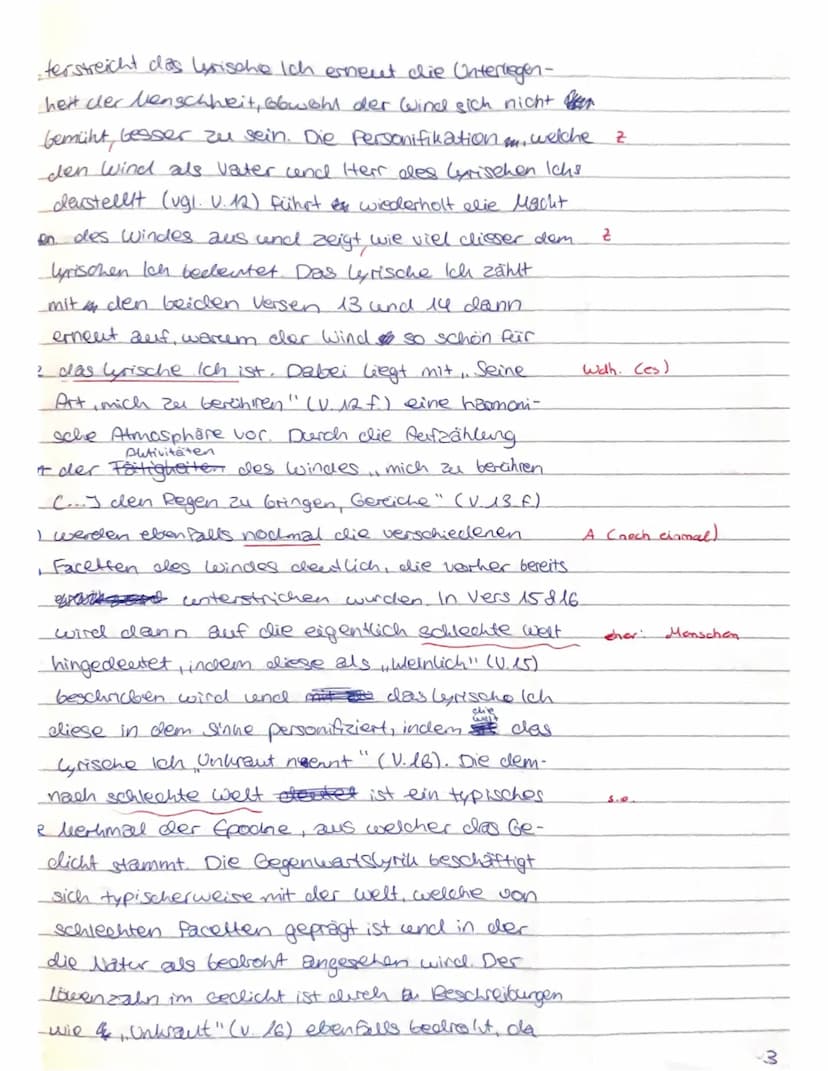 terstreicht das lyrische Ich erneut die Unterlegen-
heit der Menschheit, obwohl der Wind sich nicht
bemüht, besser zu sein. Die Personifikation, welche Z
den Wind als Vater und Herr des lyrischen Ichs
darstellt (vgl. V.12) führt wiederholt die Macht
en des Windes aus und zeigt, wie viel dieser dem Z
lyrischen Ich bedeutet. Das lyrische Ich zählt
mit den beiden Versen 13 und 14 dann
erneut auf, warum der Wind so schön für
das lyrische Ich ist. Dabei liegt mit „Seine Wdh. (es)
Art, mich zu berühren" (V.12 f.) eine harmoni-
sche Atmosphäre vor. Durch die Aufzählung
Aktivitäten
der Tätigkeiten des Windes „mich zu berühren
[...] den Regen zu bringen, Gereiche" (V.13 f)
werden ebenfalls nochmal die verschiedenen A (noch einmal)
Facetten des Windes deutlich, die vorher bereits
unterstrichen wurden. In Vers 15 & 16
wird dann auf die eigentlich schlechte Welt eher: Menschen
hingedeutet, indem diese als „Weinlich" (V.15)
beschrieben wird und das lyrische Ich
die Welt
diese in dem Sinne personifiziert, indem das
lyrische Ich „Unkraut nennt" (V.16). Die dem-
nach schlechte Welt deutet ist ein typisches s.o.
Merkmal der Epoche, aus welcher das Ge-
dicht stammt. Die Gegenwartslyrik beschäftigt
sich typischerweise mit der Welt, welche von
schlechten Facetten geprägt ist und in der
die Natur als bedroht angesehen wird. Der
Löwenzahn im Gedicht ist durch Beschreibungen
wie „Unkraut" (V. 16) ebenfalls bedroht, da
3